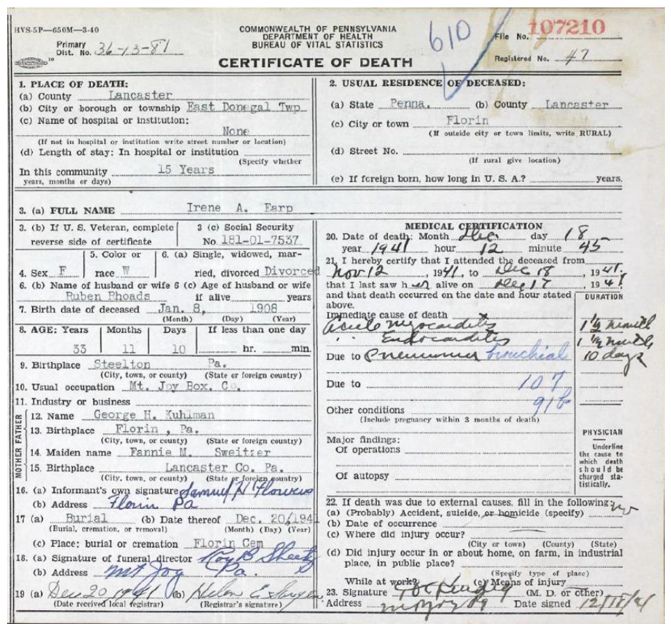 HVS-5P—650M—3-40
COMMONWEALTH OF PENNSYLVANIA
DEPARTMENT OF HEALTH
BUREAU OF VITAL STATISTICS
CERTIFICATE OF DEATH
Primary Dist. No. 36-13-81
610
File No. 107210
Registered No. 47
1. PLACE OF DEATH:
(a) County Lancaster
(b) City or borough or township East Donegal Twp
(c) Name of hospital or institution:
None
(If not in hospital or institution write street number or location)
(d) Length of stay: In hospital or institution
(Specify whether
In this community 15 Years
years, months or days)
2. USUAL RESIDENCE OF DECEASED:
(a) State Penna. (b) County Lancaster
(c) City or town Florin
(If outside city or town limits, write RURAL)
(d) Street No.
(If rural give location)
(e) If foreign born, how long in U. S. A.? years.
3. (a) FULL NAME Irene A. Earp
3. (b) If U. S. Veteran, complete reverse side of certificate
3 (c) Social Security No 181-01-7537
4. Sex F
5. Color or race W
6. (a) Single, widowed, married, divorced Divorced
6. (b) Name of husband or wife
Ruben Rhoads
6 (c) Age of husband or wife if alive years
7. Birth date of deceased Jan. 8, 1908
(Month) (Day) (Year)
8. AGE: Years Months Days If less than one day
33 11 10 hr. min.
9. Birthplace Steelton Pa.
(City, town, or county) (State or foreign country)
10. Usual occupation Mt. Joy Box. Co.
11. Industry or business
MOTHER FATHER
12. Name George H. Kuhlman
13. Birthplace Florin , Pa.
(City, town, or county) (State or foreign country)
14. Maiden name Fannie M. Sweitzer
15. Birthplace Lancaster Co. Pa.
(City, town, or county) (State or foreign country)
16. (a) Informant's own signature Samuel H Flowers
(b) Address Florin Pa
17 (a) Burial (b) Date thereof Dec. 20/1941
(Burial, cremation, or removal) (Month) (Day) (Year)
(c) Place: burial or cremation Florin Cem
18. (a) Signature of funeral director Roy B Sheetz
(b) Address Mt Joy Pa.
19 (a) Dec 20 1941 (b) Helen E
(Date received local registrar) (Registrar's signature)
MEDICAL CERTIFICATION
20. Date of death: Month Dec day 18
year 1941 hour 12 minute 45
21. I hereby certify that I attended the deceased from
Nov 12, 1941, to Dec 18, 1941,
that I last saw her alive on Dec 17, 1941
and that death occurred on the date and hour stated above.
DURATION
Immediate cause of death
Acute myocarditis 1 1/2 month
" Endocarditis 1 1/2 month
Due to Pneumonia bronchial 10 days
Due to 107
91b
Other conditions
(Include pregnancy within 3 months of death)
Major findings:
Of operations
Of autopsy
PHYSICIAN
Underline the cause to which death should be charged statistically.
22. If death was due to external causes, fill in the following:
(a) (Probably) Accident, suicide, or homicide (specify) no
(b) Date of occurrence
(c) Where did injury occur?
(City or town) (County) (State)
(d) Did injury occur in or about home, on farm, in industrial place, in public place?
(Specify type of place)
While at work? (e) Means of injury
23. Signature (M. D. or other)
Address Date signed 12/18/41